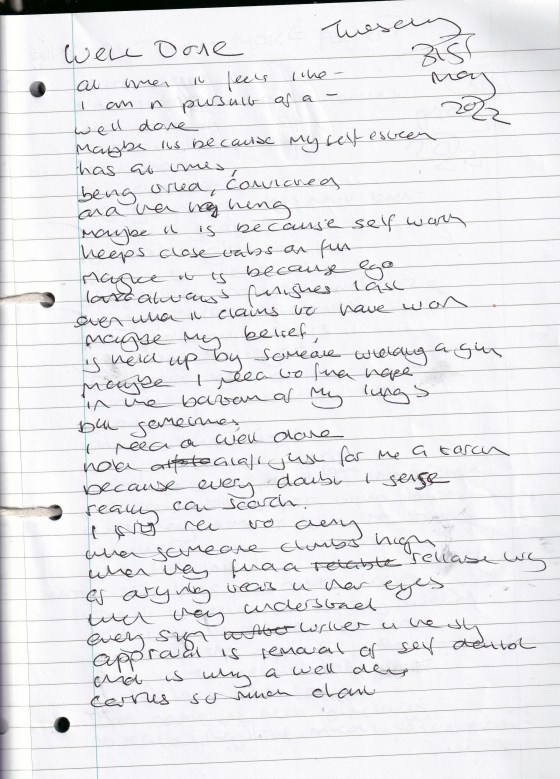 Well Done
Tuesday
31st
May
2022
at times it feels like -
I am in pursuit of a -
well done
Maybe its because my self esteem
has at times,
being tried, convicted
and then hung
Maybe it is because self worth
keeps close tabs on fun
Maybe it is because ego
always finishes last
even when it claims to have won
Maybe my belief,
is held up by someone wielding a gun
Maybe I need to find hope
in the bottom of my lungs
but sometimes,
I need a well done
hold just for me a torch
because every doubt I sense
really can scorch.
I try not to deny
when someone climbs high
when they find a reliable release
of drying tears in their eyes
when they understand
every sign written in the sky
approval is removal of self denial
and is why a well done
carries so much